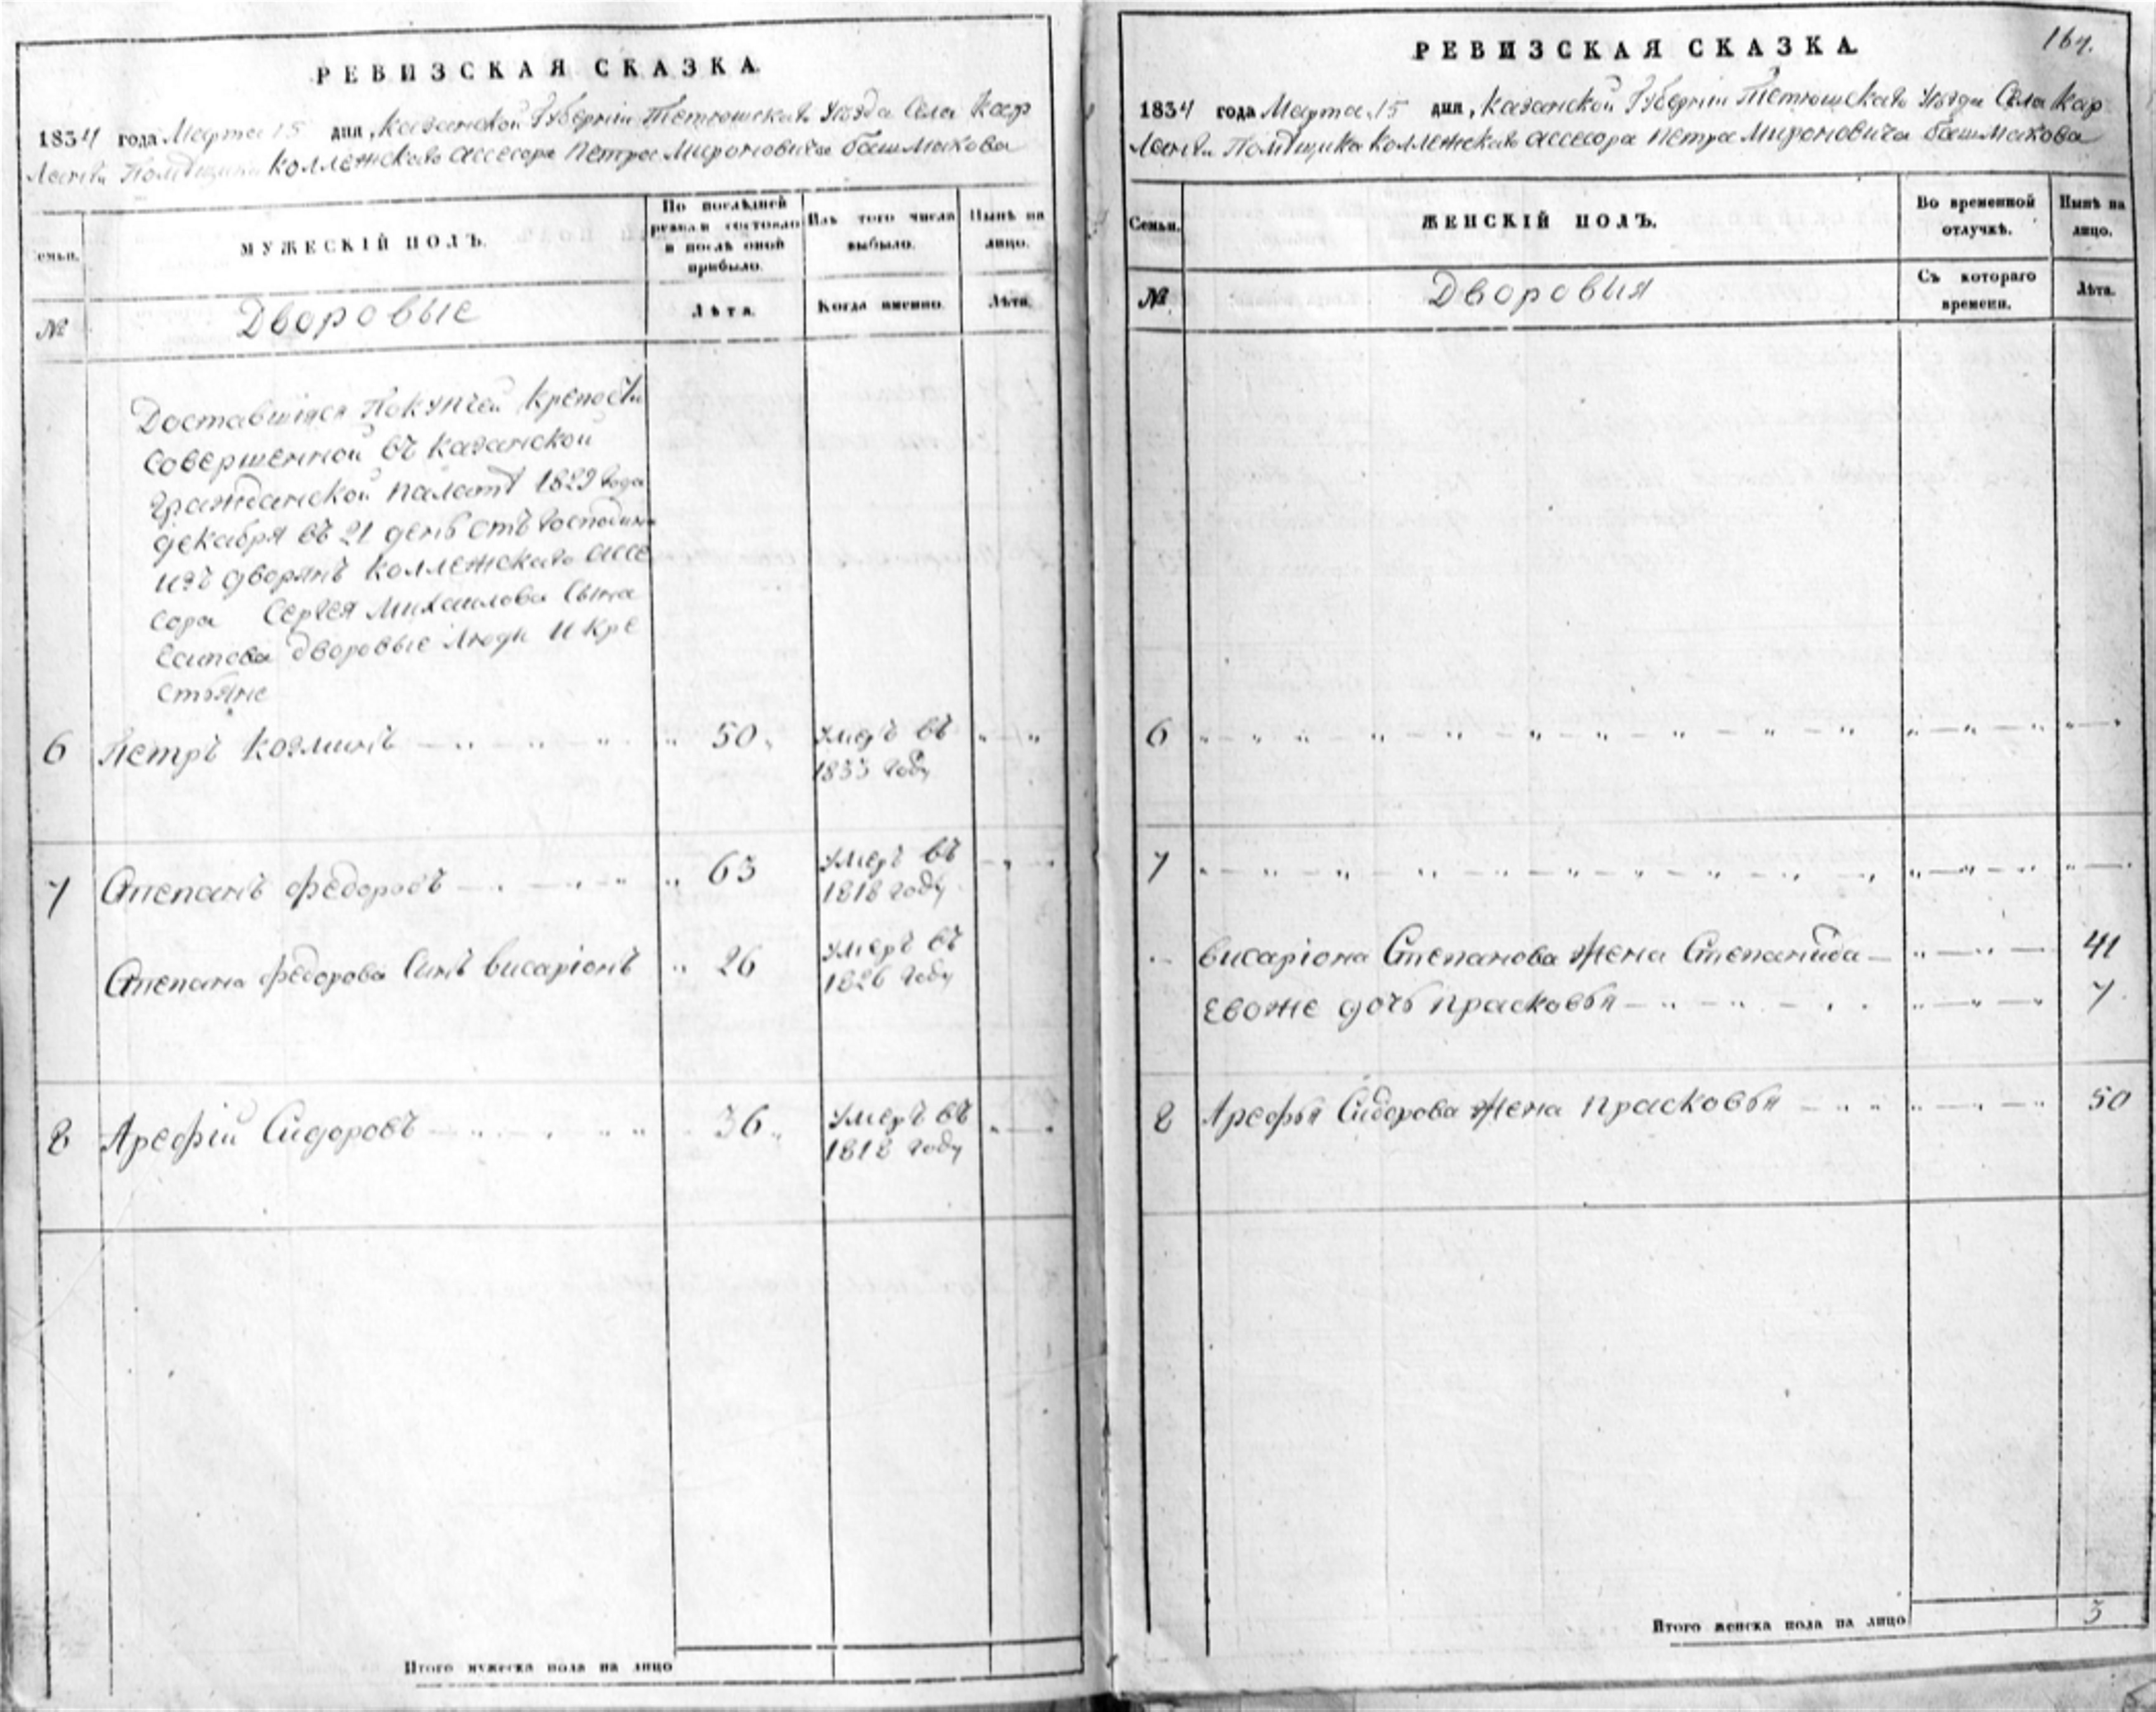 РЕВИЗСКАЯ СКАЗКА.
1834 года Марта 15 дня, Казанской Губерніи Тетюшскаго Уѣзда Села Кар
Помѣщика коллежскаго ассесора Петра Мироновича Башмакова
Семьи.
МУЖЕСКІЙ ПОЛЪ.
По послѣдней ревизіи состояло и послѣ оной прибыло.
Изъ того числа выбыло.
Нынѣ на лицо.
№
Дворовые
Лѣта.
Когда именно.
Лѣта.
Доставшіяся Покупчей крепости
совершенной въ казанской
гражданской палатѣ 1829 года
декабря въ 21 день отъ Господина
изъ дворянъ коллежскаго ассе
сора Сергея Михаилова Сына
Есипова дворовые люди и кре
стьяне
6 Петръ Козминъ 50 умеръ въ
1833 году
7 Степанъ Федоровъ 63 умеръ въ
1818 году
Степана Федорова Сынъ висаріонъ 26 умеръ въ
1826 году
8 Арефій Сидоровъ 36 умеръ въ
1818 году
Итого мужеска пола на лицо
164.
РЕВИЗСКАЯ СКАЗКА.
1834 года Марта 15 дня, Казанской Губерніи Тетюшскаго Уѣзда Села Кар
Помѣщика коллежскаго ассесора Петра Мироновича Башмакова
Семьи.
ЖЕНСКІЙ ПОЛЪ.
Во временной отлучкѣ.
Нынѣ на лицо.
№
Дворовыя
Съ котораго времени.
Лѣта.
6
7
висаріона Степанова жена Степанида 41
Евоже дочь прасковья 7
8 Арефья Сидорова жена прасковья 50
Итого женска пола на лицо 3